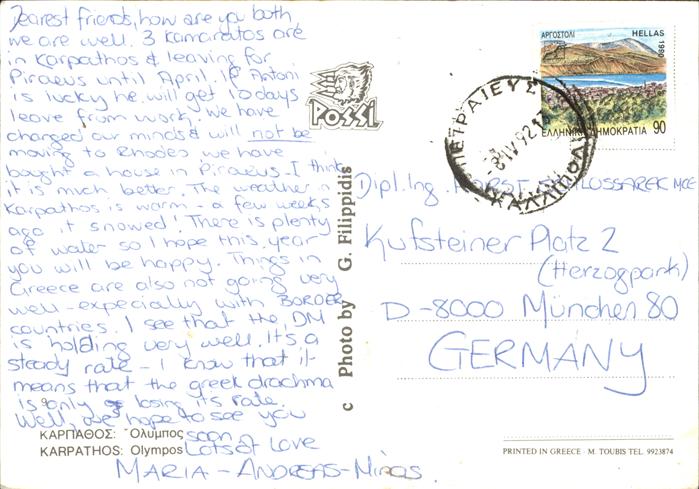 Dearest friends, how are you both
we are well. 3 Kamaratos are
in Karpathos & leaving for
Piraeus until April. If Antoni
is lucky he will get 10days
leave from work. We have
changed our minds & will not be
moving to Rhodes we have
bought a house in Piraeus - I think
it is much better. The weather in
Karpathos is warm - a few weeks
ago it snowed! There is plenty
of water so I hope this year
you will be happy. Things in
Greece are also not going very
well - expecially with BORDER
countries. I see that the DM
is holding very well. It's a
steady rate - I know that it
means that the greek drachma
is only losing its rate.
Well, we hope to see you
soon.
Lots of Love
MARIA - ANDREAS -
ΚΑΡΠΑΘΟΣ: Όλυμπος
KARPATHOS: Olympos
POSSI
c Photo by G. Filippidis
ΑΡΓΟΣΤΟΛΙ HELLAS
1990
ΕΛΛΗΝΙΚΗ ΔΗΜΟΚΡΑΤΙΑ 90
Dipl. Ing. HORST MCE
Kufsteiner Platz 2
(Herzogpark)
D-8000 München 80
GERMANY
PRINTED IN GREECE · M. TOUBIS TEL. 9923874